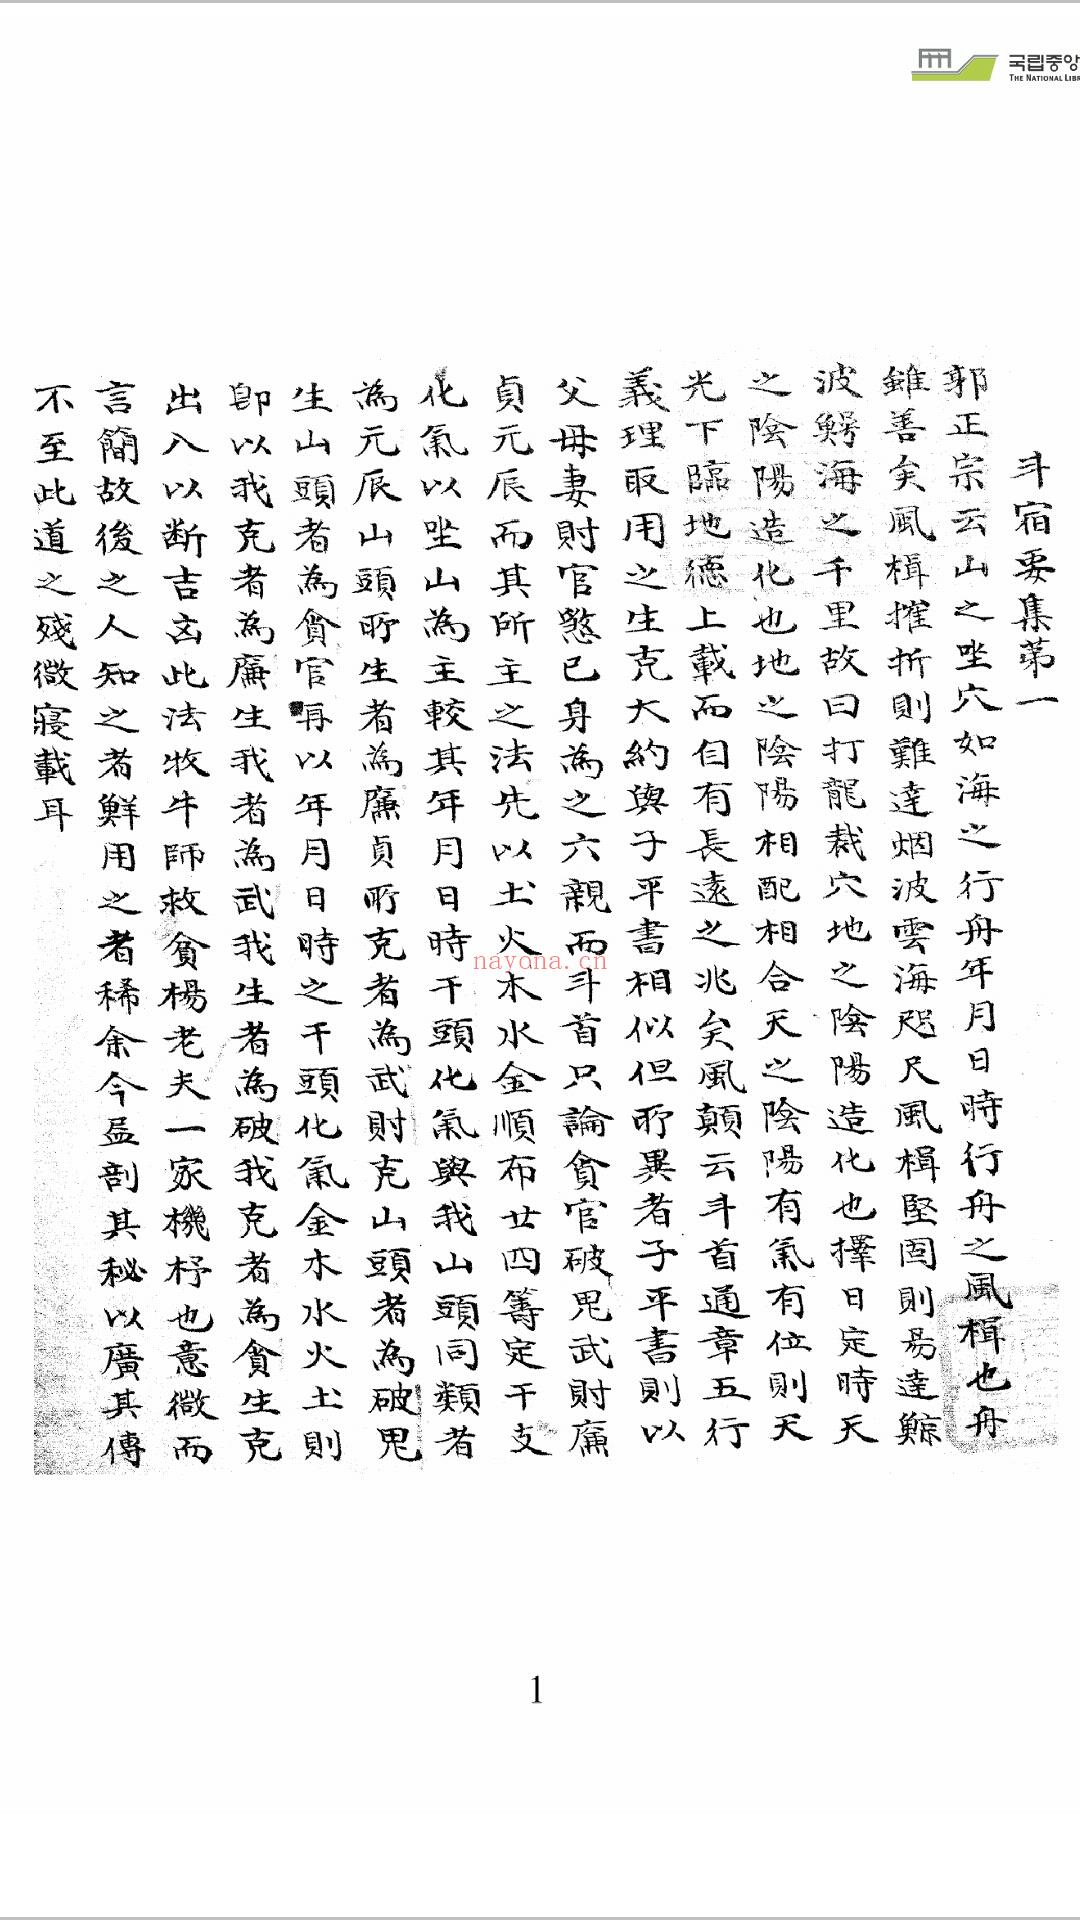 국립중앙
THE NATIONAL LIBR
斗宿要集第一
郭正宗云山之坐穴如海之行舟年月日時行舟之風楫也舟
雖善矣風楫摧折則難達烟波雲海咫尺風楫堅固則易達鯨
波鰐海之千里故曰打龍裁穴地之陰陽造化也擇日定時天
之陰陽造化也地之陰陽相配相合天之陰陽有氣有位則天
光下臨地德上載而自有長遠之兆矣風顛云斗首通章五行
義理取用之生克大約與子平書相似但所異者子平書則以
父母妻財官慾已身為之六親而斗首只論貪官破鬼武財廉
貞元辰而其所主之法先以土火木水金順布廿四籌定干支
化氣以坐山為主較其年月日時干頭化氣與我山頭同類者
為元辰山頭所生者為廉貞所克者為武財克山頭者為破鬼
生山頭者為貪官再以年月日時之干頭化氣金木水火土則
即以我克者為廉生我者為武我生者為破我克者為貪生克
出入以断吉凶此法牧牛師救貧楊老夫一家機杼也意微而
言簡故後之人知之者鮮用之者稀余今益剖其秘以廣其傳
不至此道之殘微寢載耳
nayona.cn
1